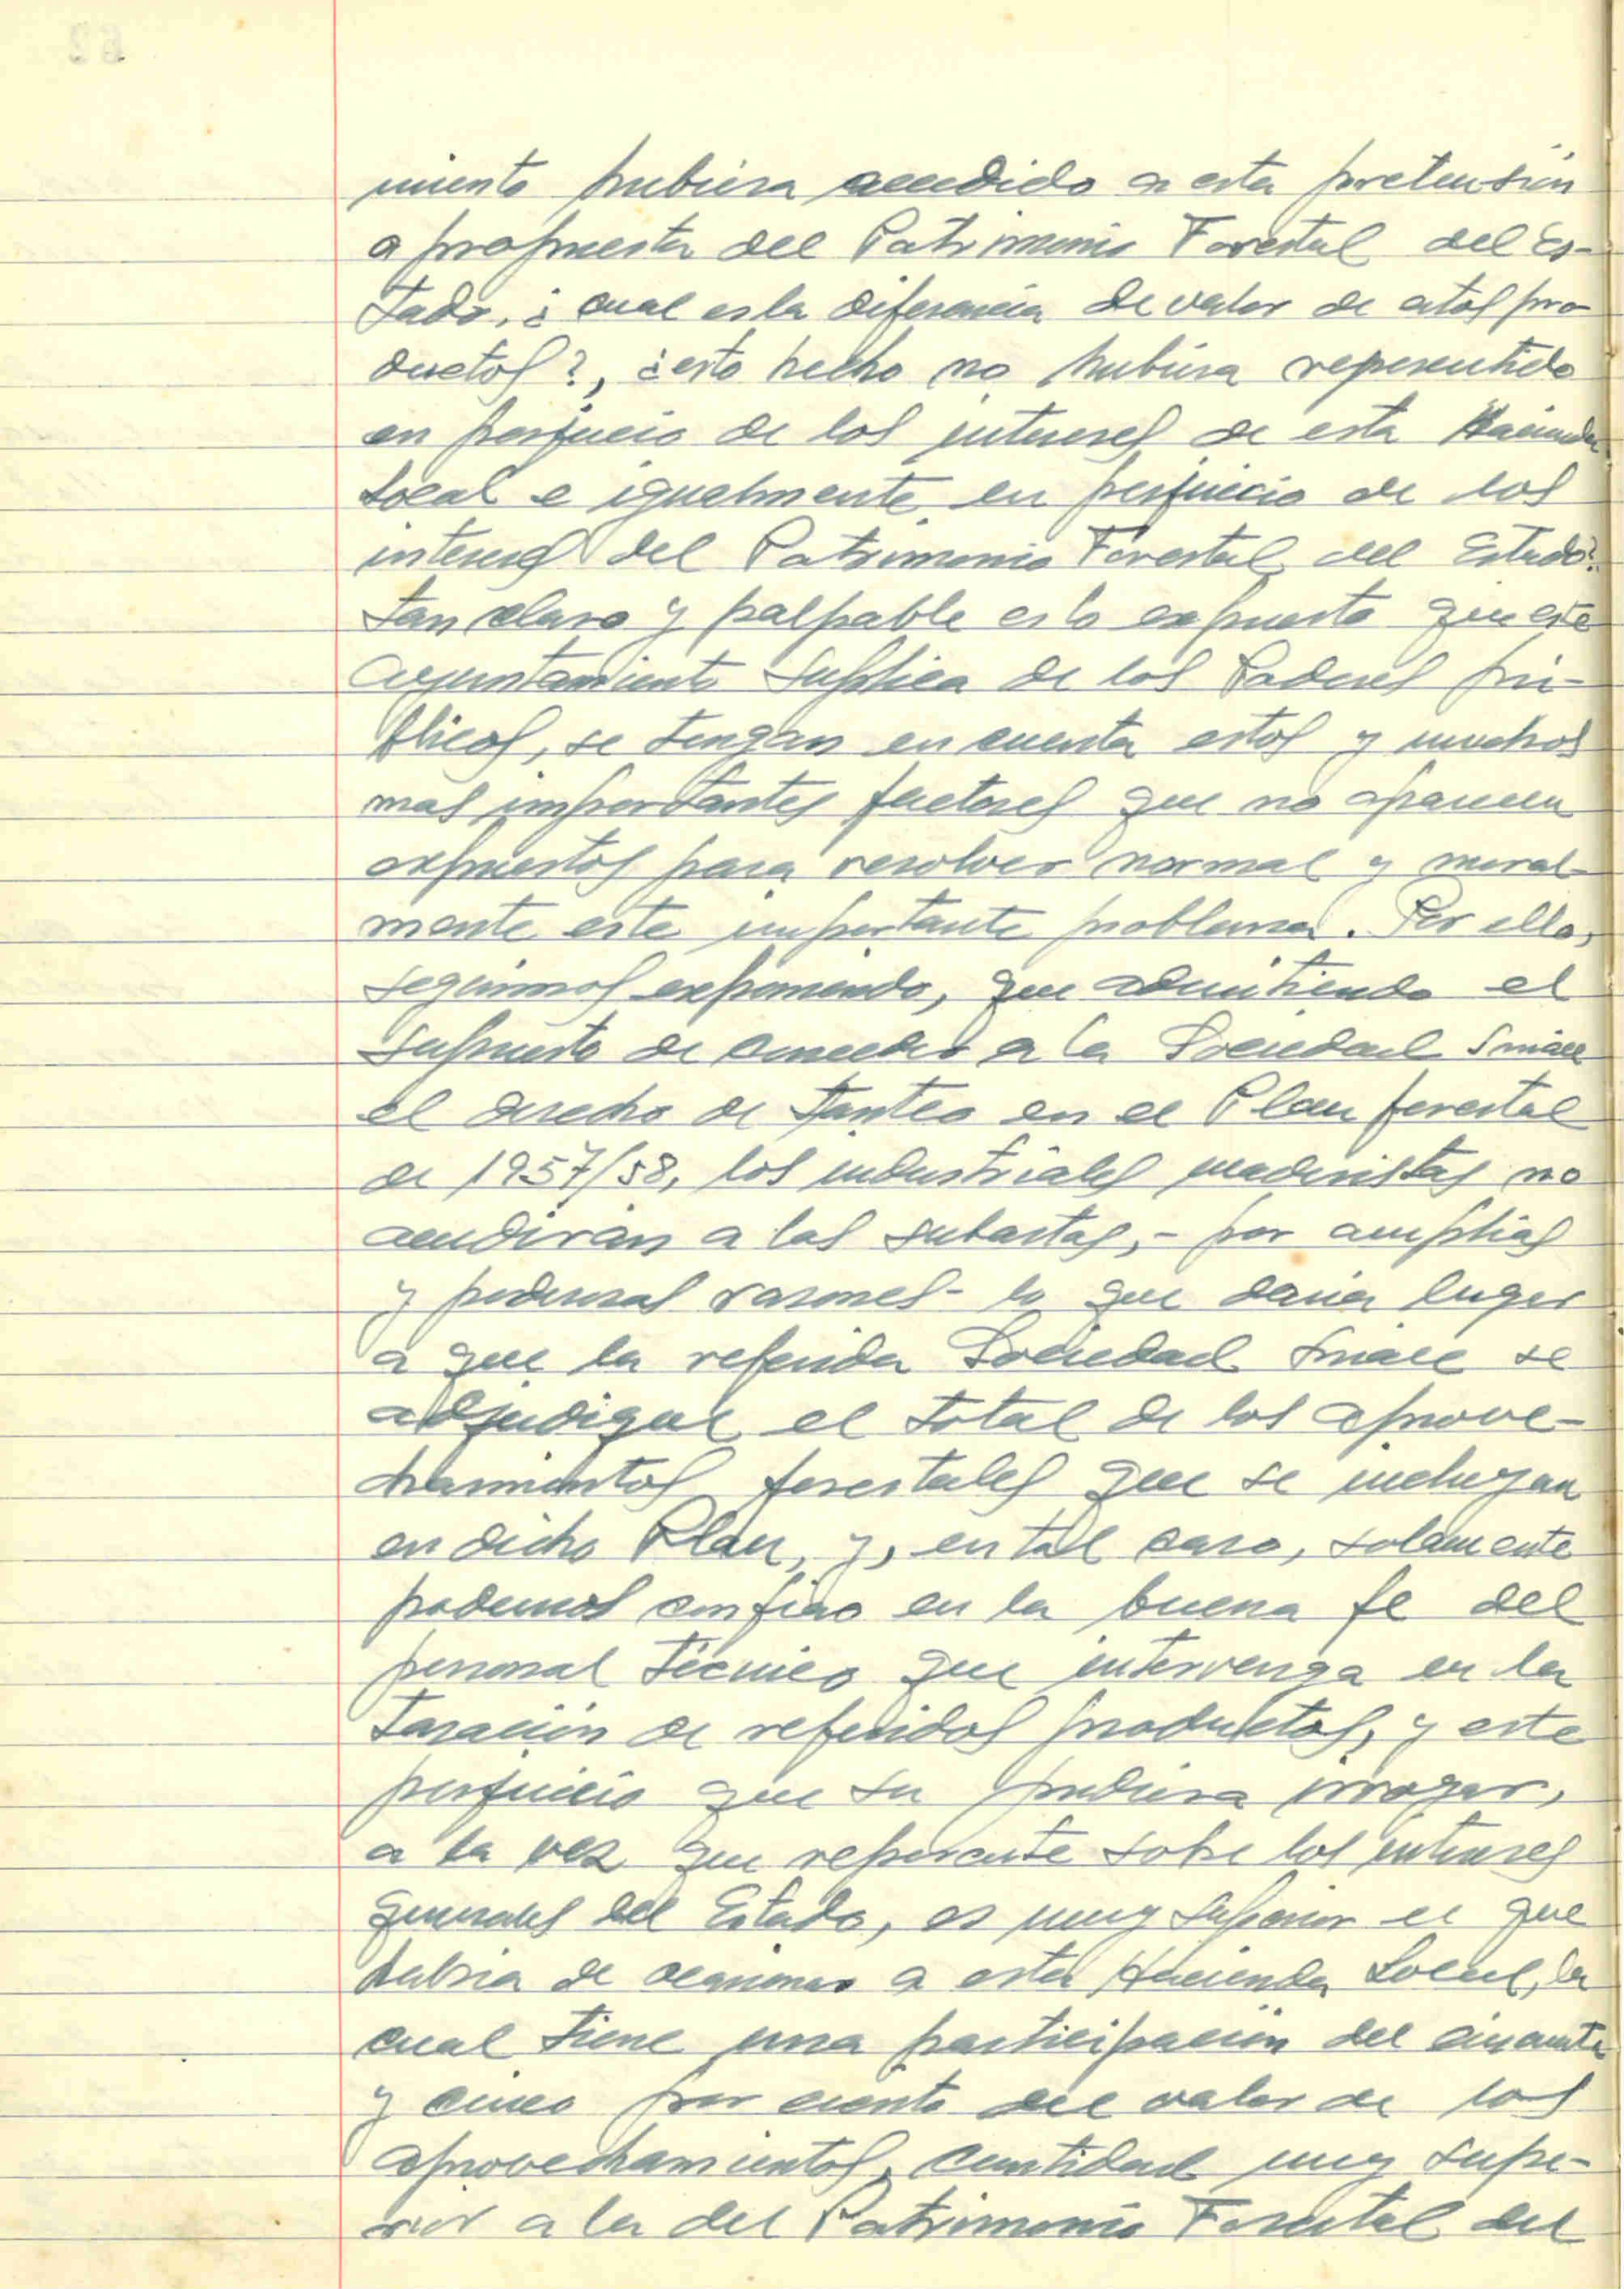 miento hubiera accedido a esta pretensión
a propuesta del Patrimonio Forestal del Es-
tado, ¿cual es la diferencia de valor de estos pro
ductos?, ¿esto hecho no hubiera repercutido
en perjuicio de los intereses de esta Hacienda
Local e igualmente en perjuicio de los
intereses del Patrimonio Forestal del Estado?
tan claro y palpable es lo expuesto que este
Ayuntamiento suplica de los Poderes pú-
blicos, se tengan en cuenta estos y muchos
mas importantes factores que no aparecen
expuestos para resolver normal y moral-
mente este importante problema. Por ello,
seguimos exponiendo, que admitiendo el
supuesto de conceder a la Sociedad Sniace
el derecho de tanteo en el Plan forestal
de 1957/58, los industriales maderistas no
acudirán a las subastas,- por amplias
y poderosas rasones- lo que daria lugar
a que la referida Sociedad Sniace se
adjudique el total de los aprove-
chamientos forestales que se incluyan
en dicho Plan, y, en tal caso, solamente
podemos confiar en la buena fe del
personal técnico que intervenga en la
tasación de referidos productos, y este
perjuicio que su pudiera irrogar,
a la vez que repercute sobre los intereses
generales del Estado, es muy superior el que
habria de ocasionar a esta Hacienda Local, la
cual tiene una participación del cincuenta
y cinco por ciento del valor de los
aprovechamientos, cantidad muy supe-
rior a la del Patrimonio Forestal del